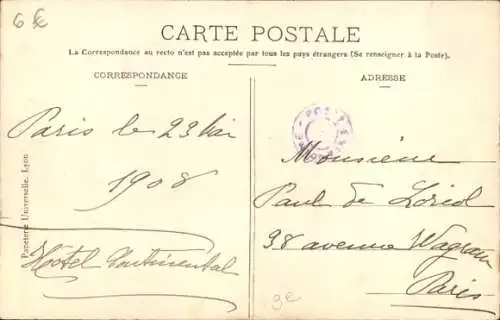 6 €
CARTE POSTALE
La Correspondance au recto n'est pas acceptée par tous les pays étrangers (Se renseigner à la Poste).
CORRESPONDANCE
Paris le 23 Mai
1908
Hôtel Continental
Papeterie Universelle, Lyon
ADRESSE
Monsieur
Paul de Loriol
38 avenue Wagram
Paris
3e